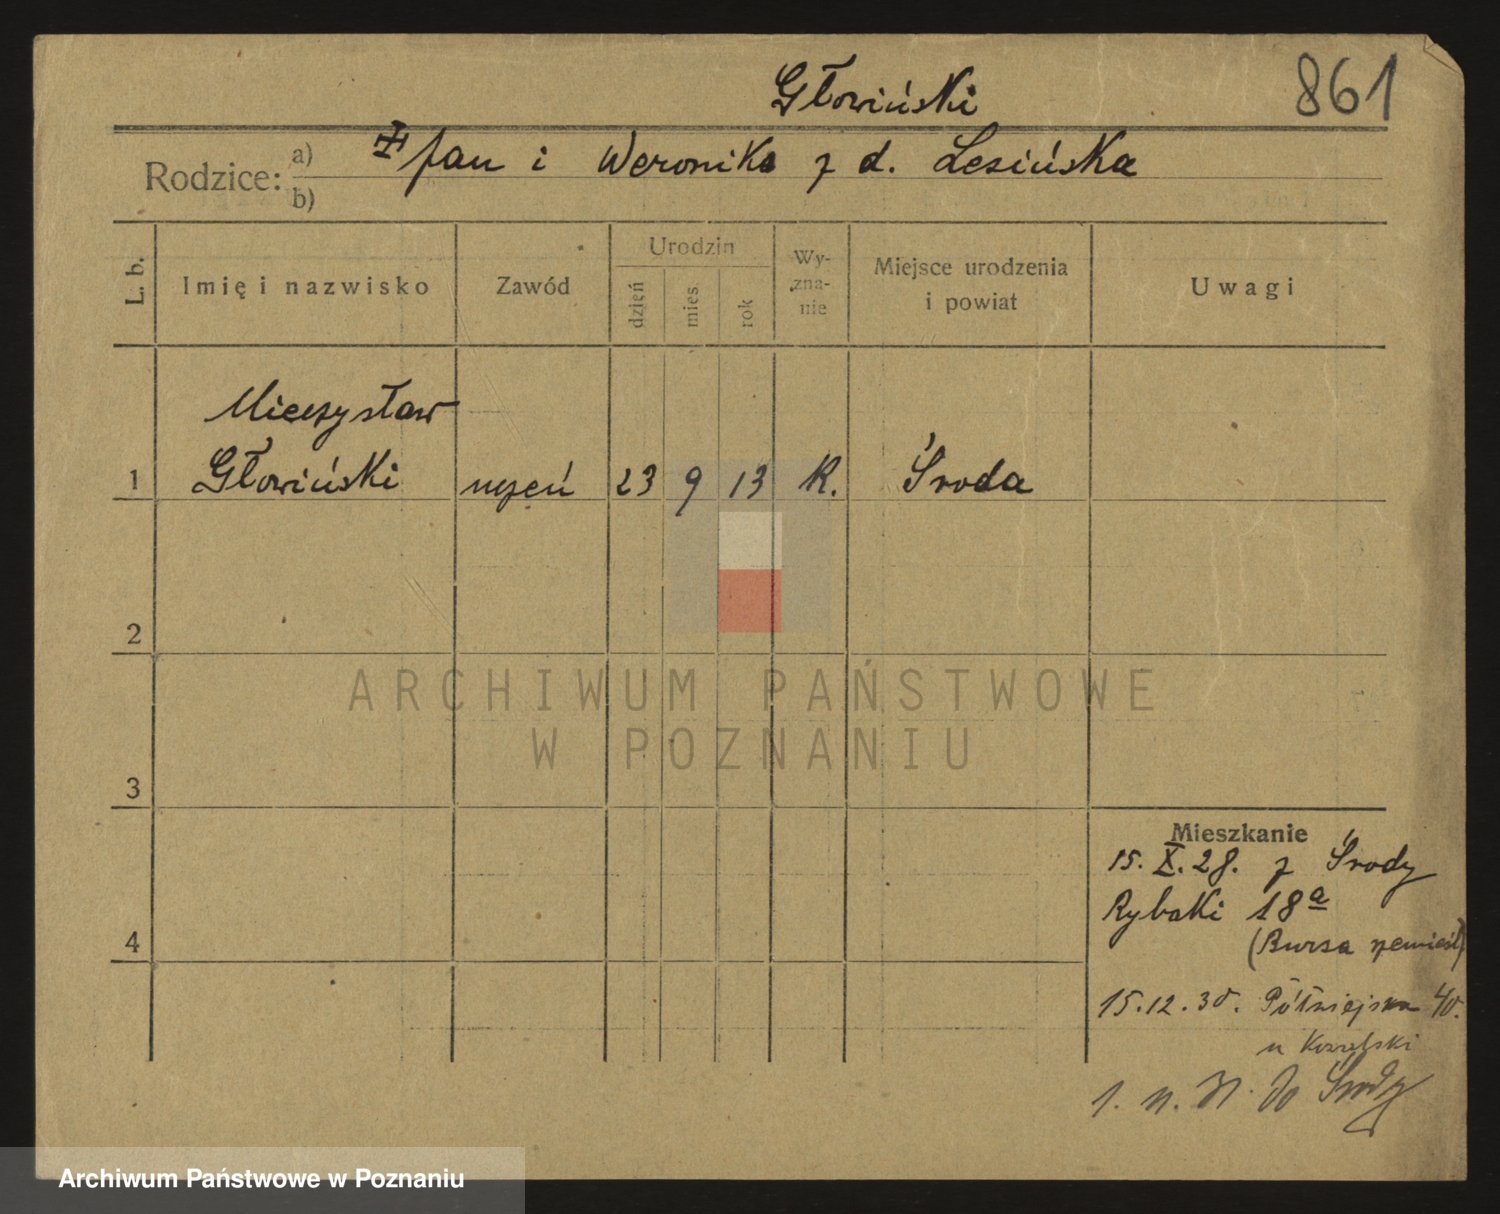 Głowiński
861
Rodzice: a) Jan i Weronika z d. Lesińska
b)
L. b. Imię i nazwisko Zawód Urodzin dzień mies. rok Wy-zna-nie Miejsce urodzenia i powiat Uwagi
Mieczysław
1 Głowiński uczeń 23 9 13 k. Środa
2
ARCHIWUM PAŃSTWOWE
W POZNANIU
3
Mieszkanie
15. X. 28. z Środy
Rybaki 18a
(Bursa rzemieśl)
4
15.12.30. Półwiejska 40.
u Kowalski
do Środy
Archiwum Państwowe w Poznaniu